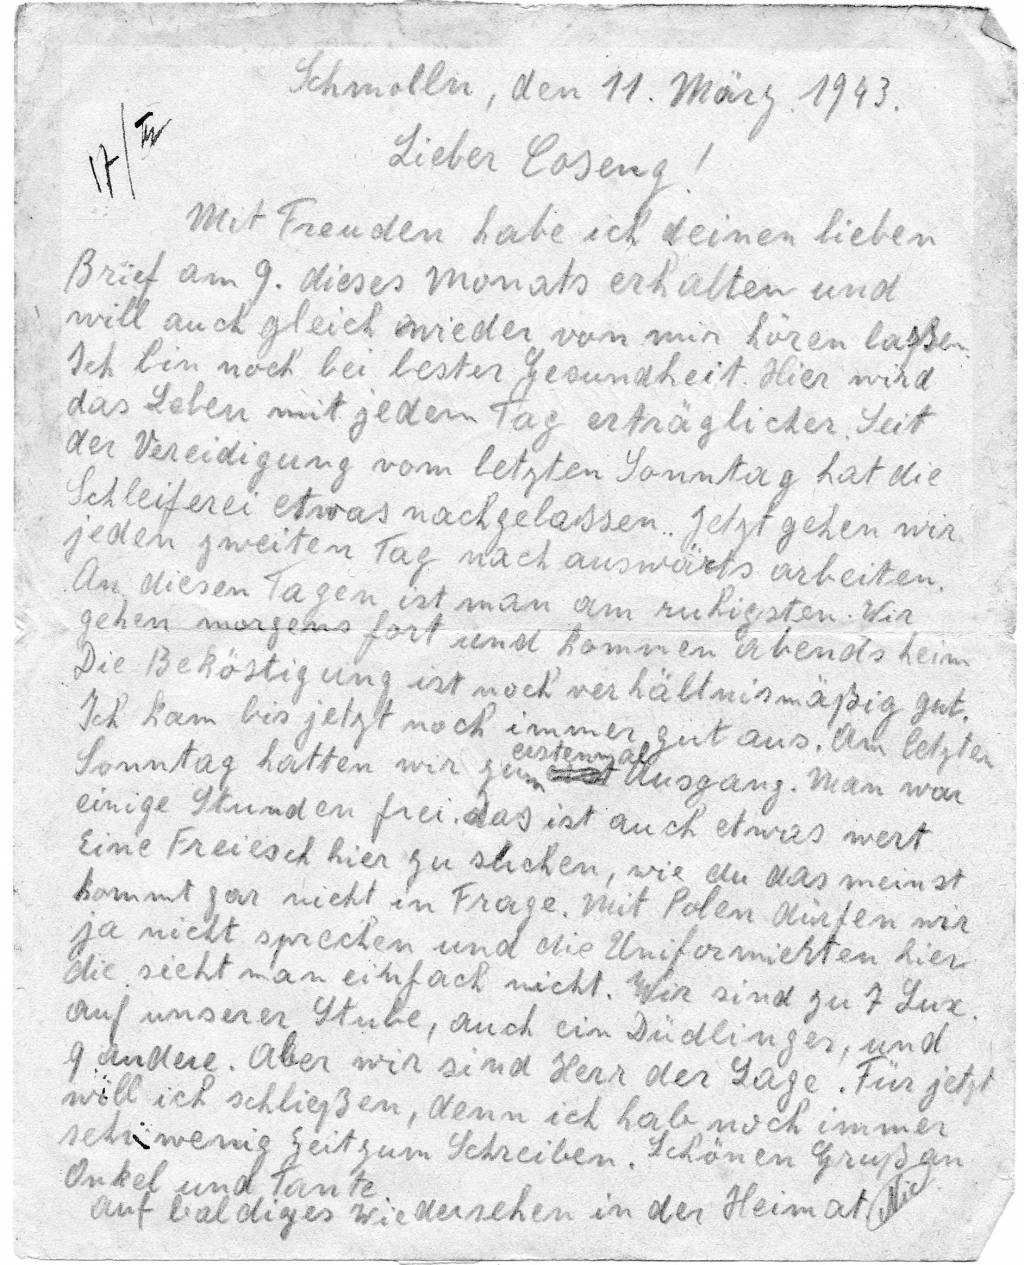 Schmolln, den 11. März 1943.
17/III
Lieber Coseng!
Mit Freuden habe ich deinen lieben
Brief am 9. dieses Monats erhalten und
will auch gleich wieder von mir hören laßen.
Ich bin noch bei bester Gesundheit. Hier wird
das Leben mit jedem Tag erträglicher. Seit
der Vereidigung vom letzten Sonntag hat die
Schleiferei etwas nachgelassen.. Jetzt gehen wir
jeden zweiten Tag nach auswärts arbeiten.
An diesen Tagen ist man am ruhigsten. Wir
gehen morgens fort und kommen abends heim
Die Beköstigung ist noch verhältnismäßig gut.
Ich kam bis jetzt noch immer gut aus. Am letzten
Sonntag hatten wir zum erstenmal Ausgang. Man war
einige Stunden frei. das ist auch etwas wert
Eine Freiesch hier zu suchen, wie du das meinst
kommt gar nicht in Frage. Mit Polen dürfen wir
ja nicht sprechen und die Uniformierten hier
die sieht man einfach nicht. Wir sind zu 7 Lux.
auf unserer Stube, auch ein Düdlinger, und
9 andere. Aber wir sind Herr der Lage. Für jetzt
will ich schließen, denn ich hab noch immer
sehr wenig Zeit zum Schreiben. Schönen Gruß an
Onkel und Tante
Auf baldiges Wiedersehen in der Heimat